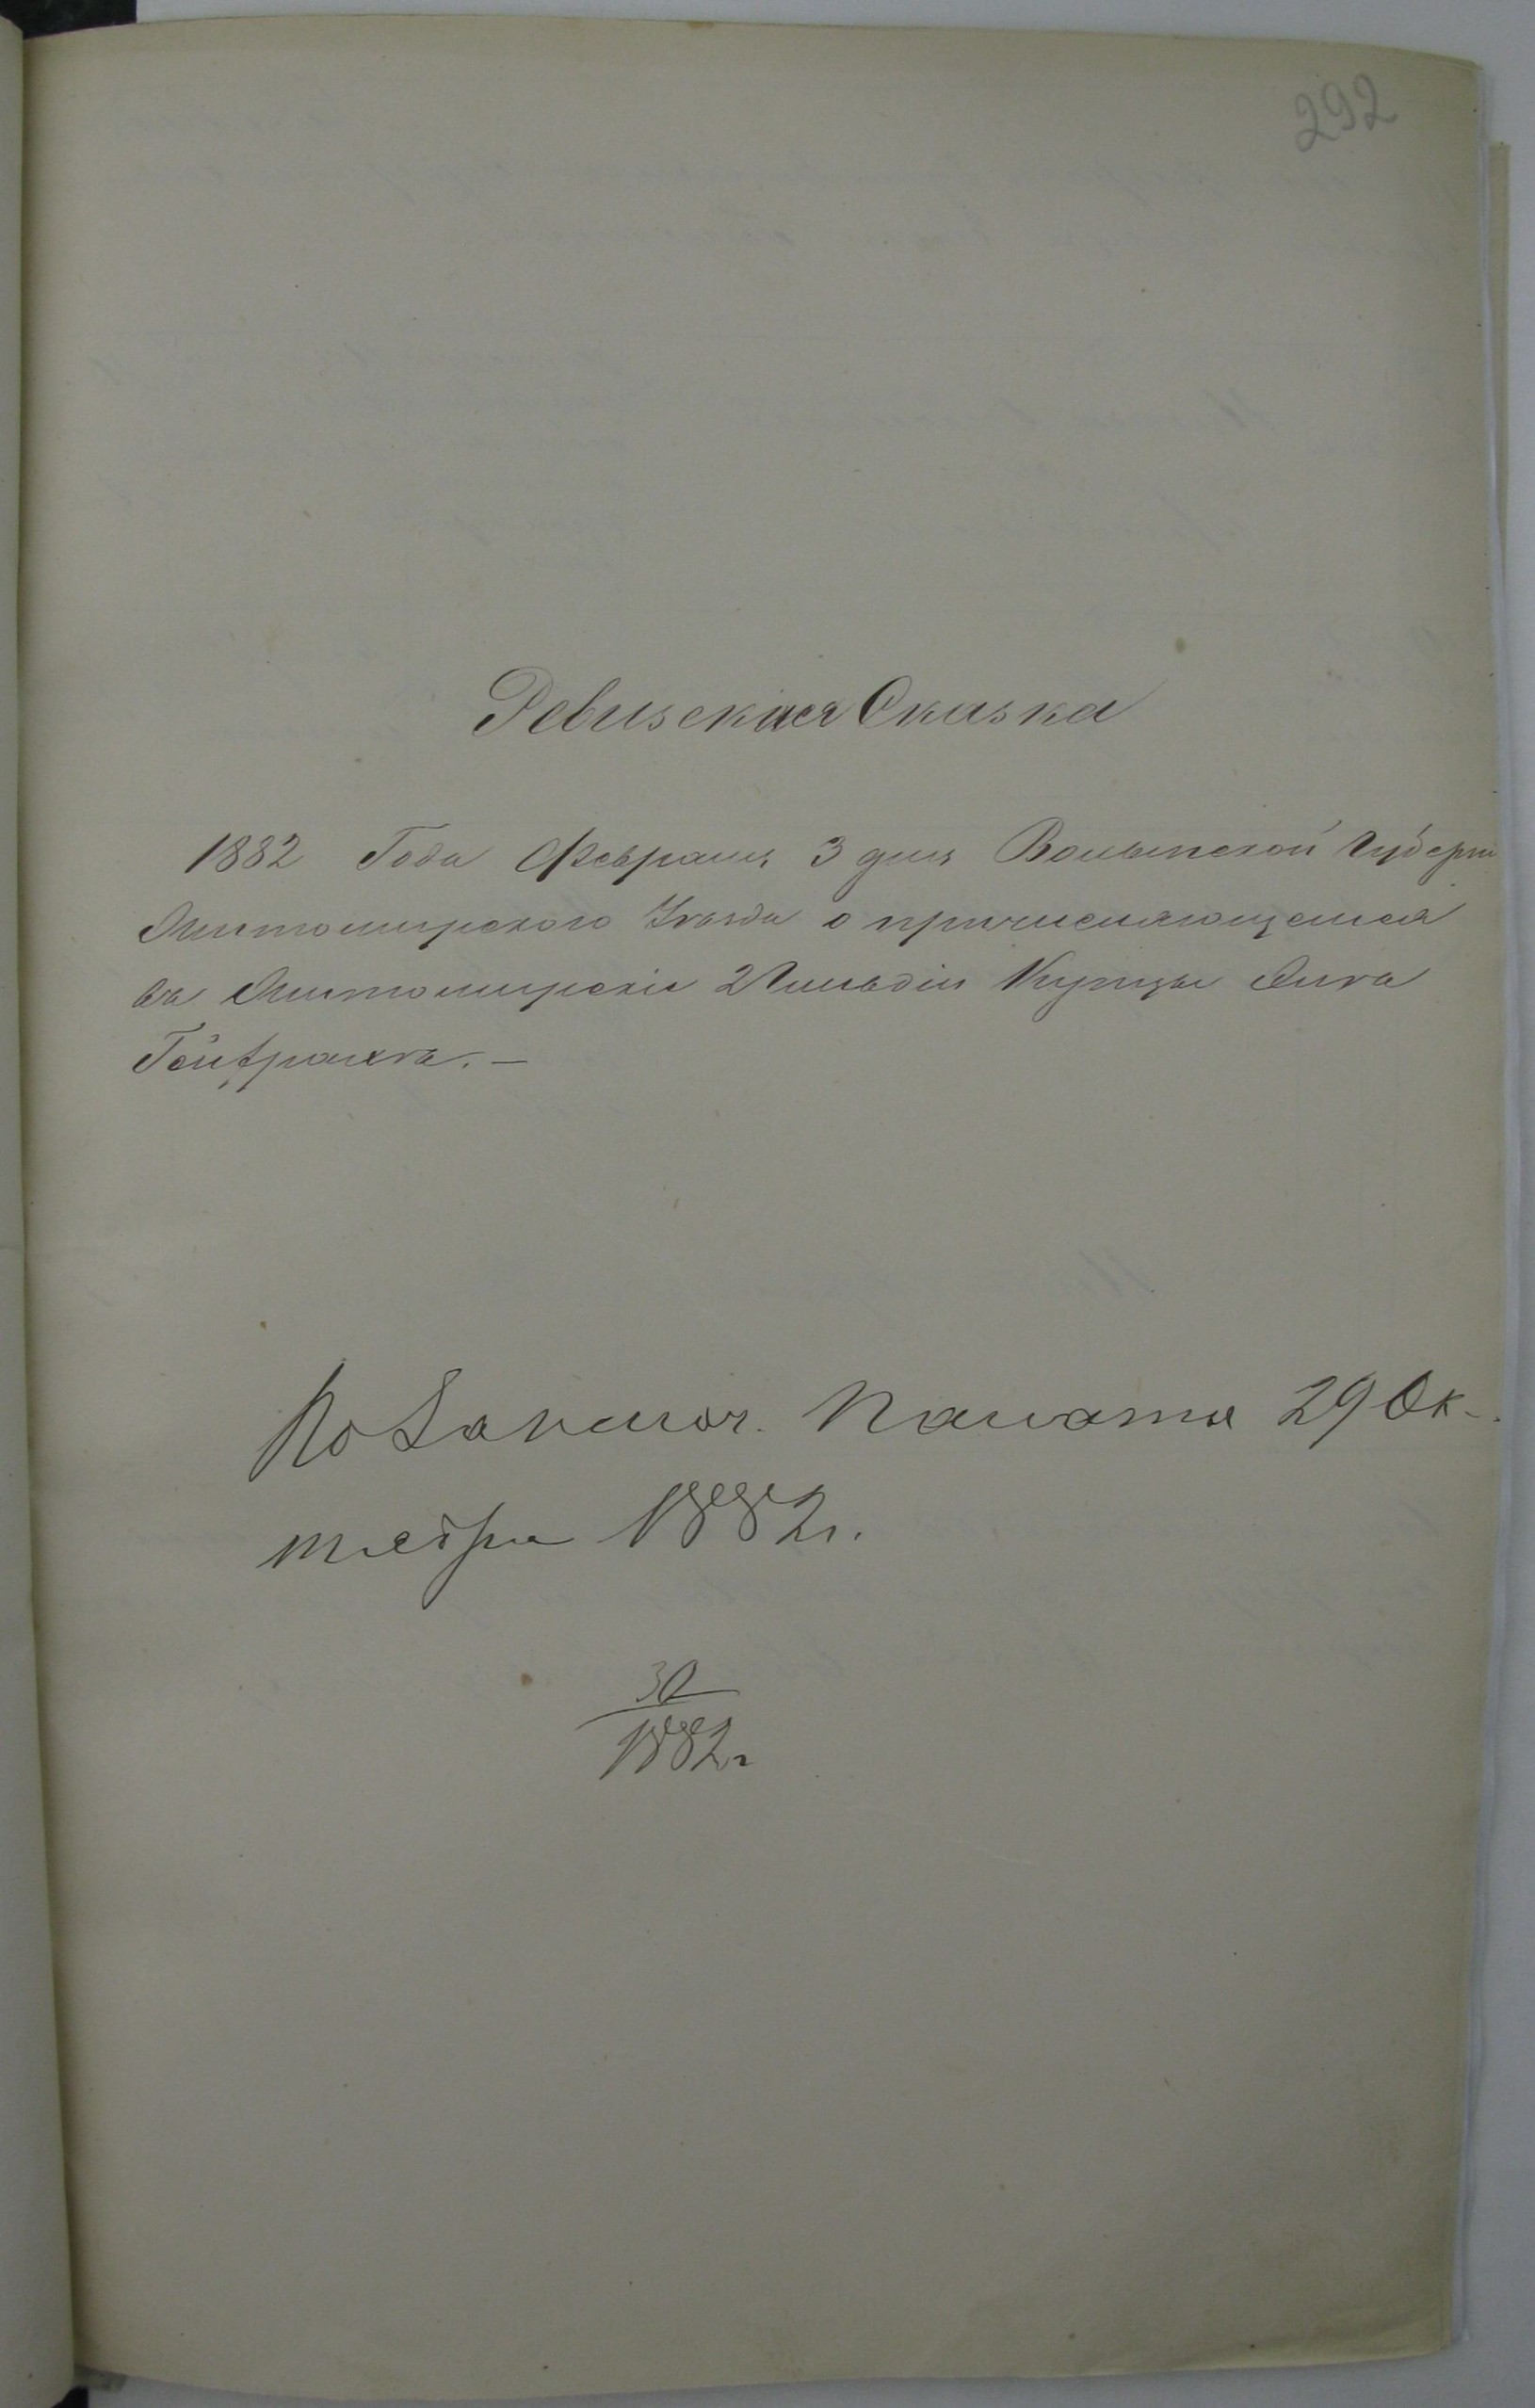 292
Ревизская Сказка
1882 Года Февраля 3 дня Волынской Губерн
Житомирскаго Уѣзда о причисляющемся
въ Житомирскіе 2 Гильдіи Купцы
По Палаты 29 Ок-
тября 1882 г.
30
1882 г